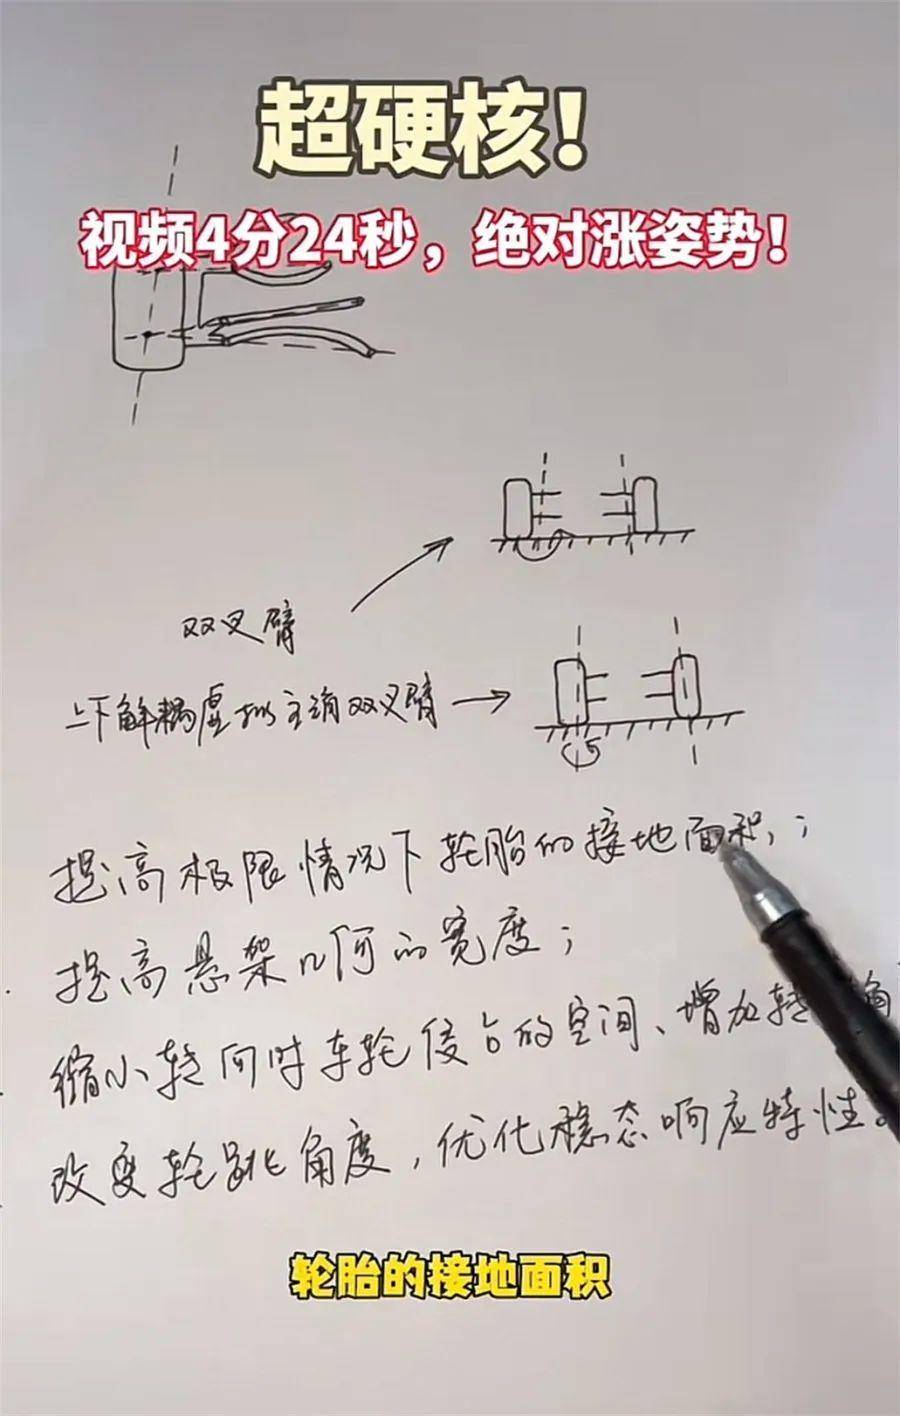 超硬核!
视频4分24秒，绝对涨姿势!
双叉臂
上下解耦虚拟主销双叉臂
提高极限情况下轮胎的接地面积；
提高悬架几何的宽度；
缩小转向时车轮侵占的空间、增加转角
改变轮跳角度，优化稳态响应特性。
轮胎的接地面积